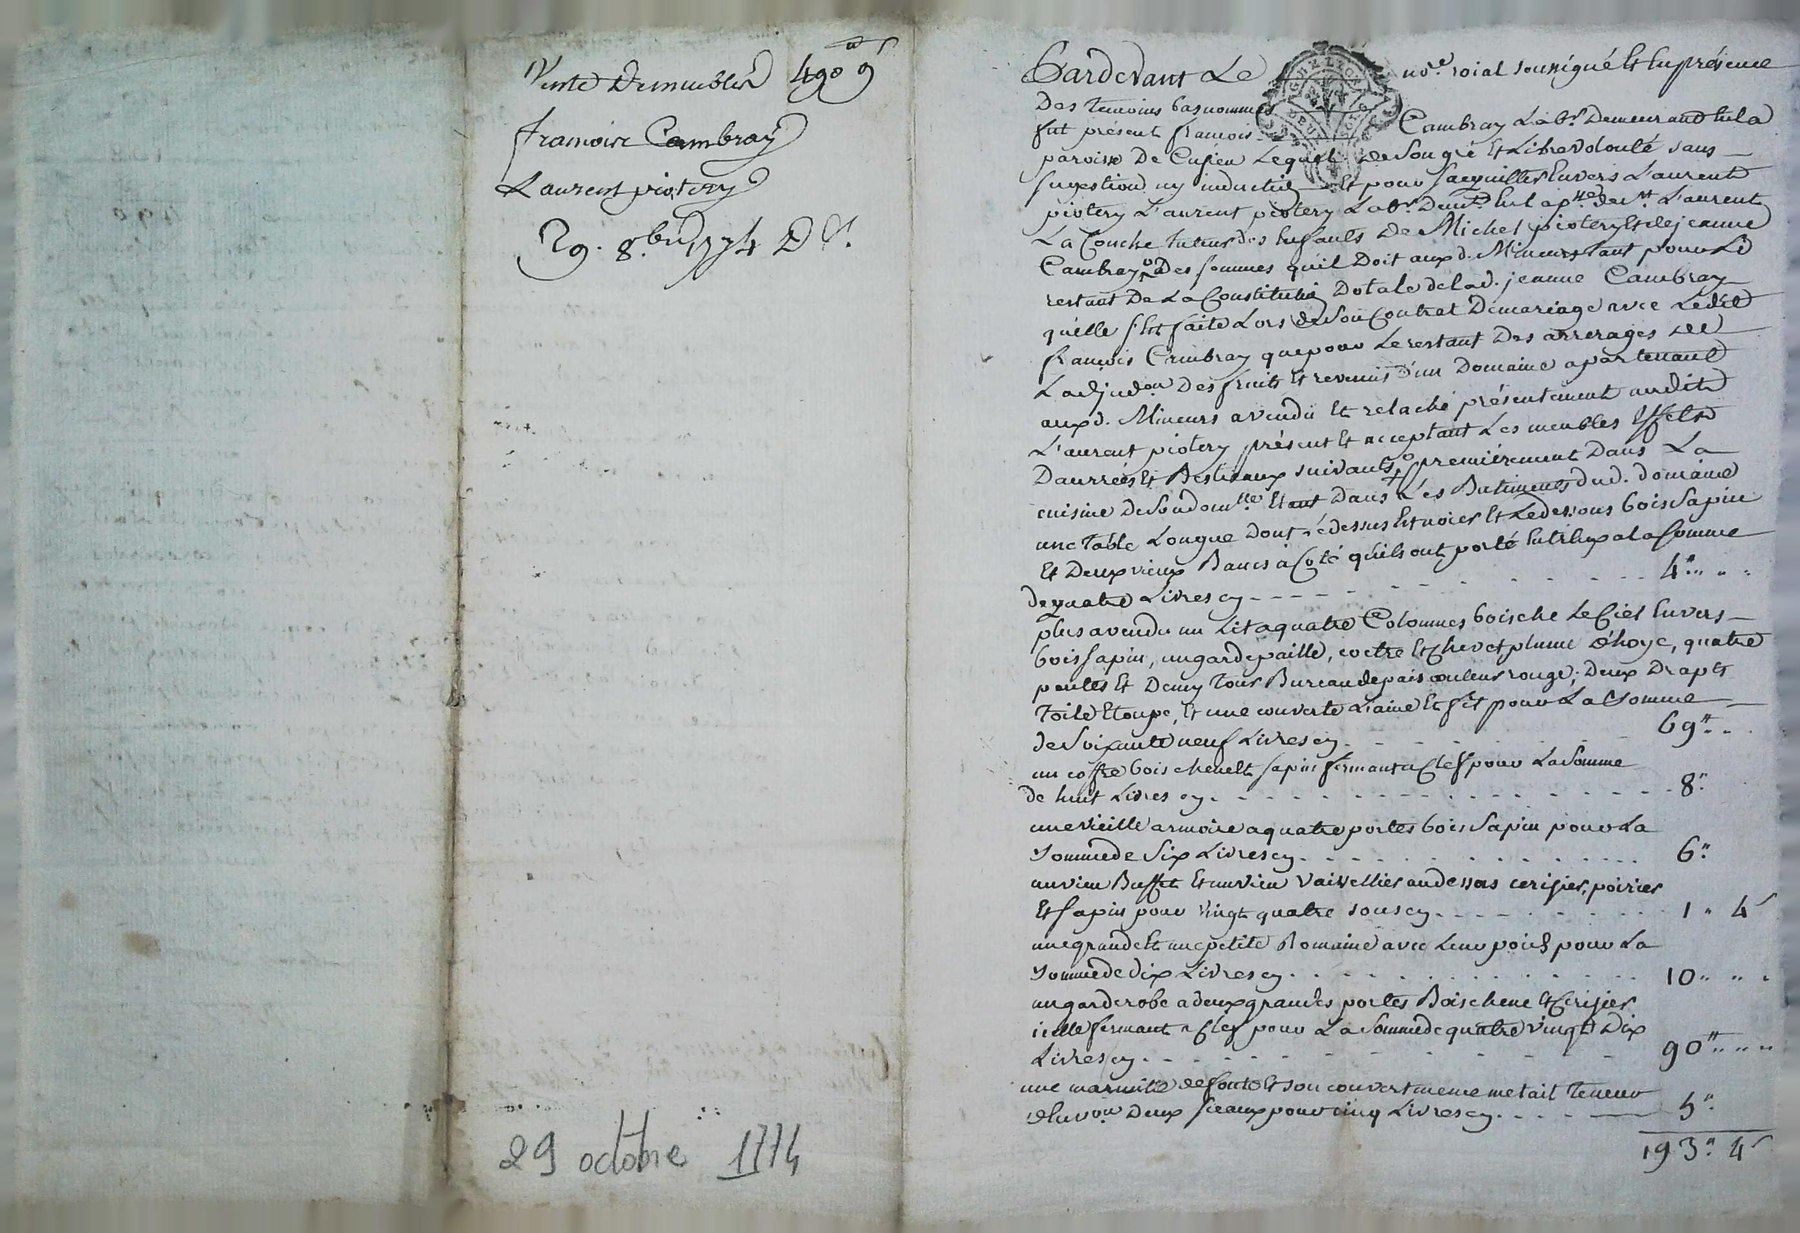 Vente De meubles 490# 9s
francois Cambray
Laurent piotery
29. 8.bre 1774
29 octobre 1774
Pardevant Le no.re roial soussigné Et En présence
Des temoins bas nommes
fut présent francois Cambray Lab.r Demeurant En la
paroisse De Cuzieu Lequel De Son gré Et Libre volonté sans
sugestion ny induction Et pour s'acquitter Envers Laurent
piotery Laurent piotery Lab.r Dem.t En la p.sse de st Laurent
La Conche tuteur des Enfants De Michel piotery Et de jeanne
Cambray Des sommes qu'il Doit aux d. Mineurs tant pour Le
restant De La Constitution Dotale de lad. jeanne Cambray
qu'elle s'est faite Lors de Son Contrat De mariage avec Ledit
francois Cambray que pour Le restant Des arrerages de
L'adjud.on Des fruits Et revenus D'un Domaine apartenant
aux d. Mineurs a vendu Et relaché présentement audit
Laurent piotery présent Et acceptant Les meubles Effets
Danrrées Et Bestiaux suivants, premièrement Dans La
cuisine De Son dom.lle Etant Dans Les Batiments dud. domaine
une Table Longue Dont le dessus Est noier Et Le dessous bois Sapin
Et Deux vieux Bancs à Coté qu'ils ont porté Entr'Eux a la somme
de quatre Livres cy - - - 4# " "
plus a vendu un Lit a quatre Colonnes bois che Le Ciel Envers
bois sapin, un garde paille, coetre Et Chevet plume d'hoye, quatre
pentes Et Demy tour Bureau de pais couleur rouge, Deux Draps
toile Etoupe, Et une couverte Laine Et fil pour La Somme
de Soixante neuf Livres cy - - - 69# "
un coffre bois chene Et sapin fermant a Clef pour La Somme
de huit Livres cy - - - 8#
une vieille armoire a quatre portes bois Sapin pour La
Somme de Six Livres cy - - - 6#
un vieu Buffet Et un vieu vaisellier au dessus cerisier, poirier
Et sapin pour vingt quatre sous cy - - - 1 " 4s
une grande Et une petite Romaine avec Leur poids pour La
Somme de dix Livres cy - - - 10 " " "
un garderobe a deux grandes portes Bois chene Et Cerisier
icelle fermant a Clef pour La Somme de quatre vingt Dix
Livres cy - - - 90# " "
une marmite de fonte Et son couvert meme metail teneur
d'Env.on Deux seaux pour cinq Livres cy - - - 5#
193# 4s